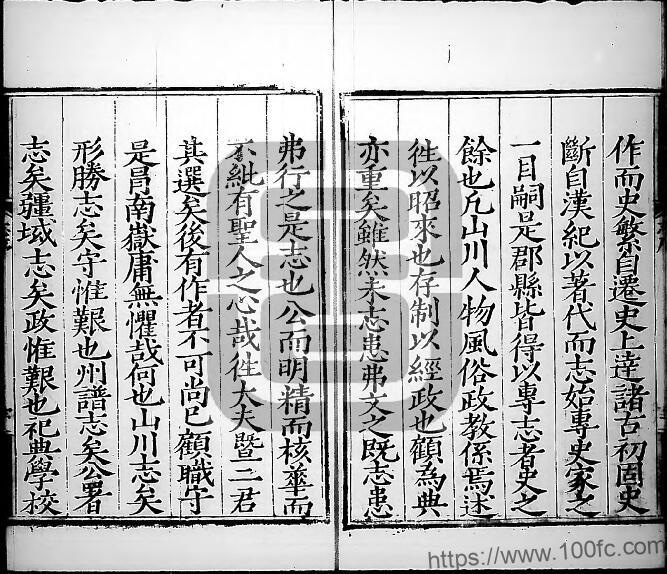 作而史繁自遷史上逹諸古初固史
斷自漢紀以著代而志始專史家之
一目嗣是郡縣皆得以專志者史之
餘也凡山川人物風俗政教係焉述
徃以昭來也存制以經政也顧為典
亦重矣雖然未志患弗文之既志患
弗行之是志也公而明精而核華而
不紕有聖人之心哉徃大夫暨二君
其選矣後有作者不可尚已顧職守
是冐南嶽庸無懼哉何也山川志矣
形勝志矣守惟艱也州譜志矣公署
志矣疆域志矣政惟艱也祀典學校
https://www.100fc.com